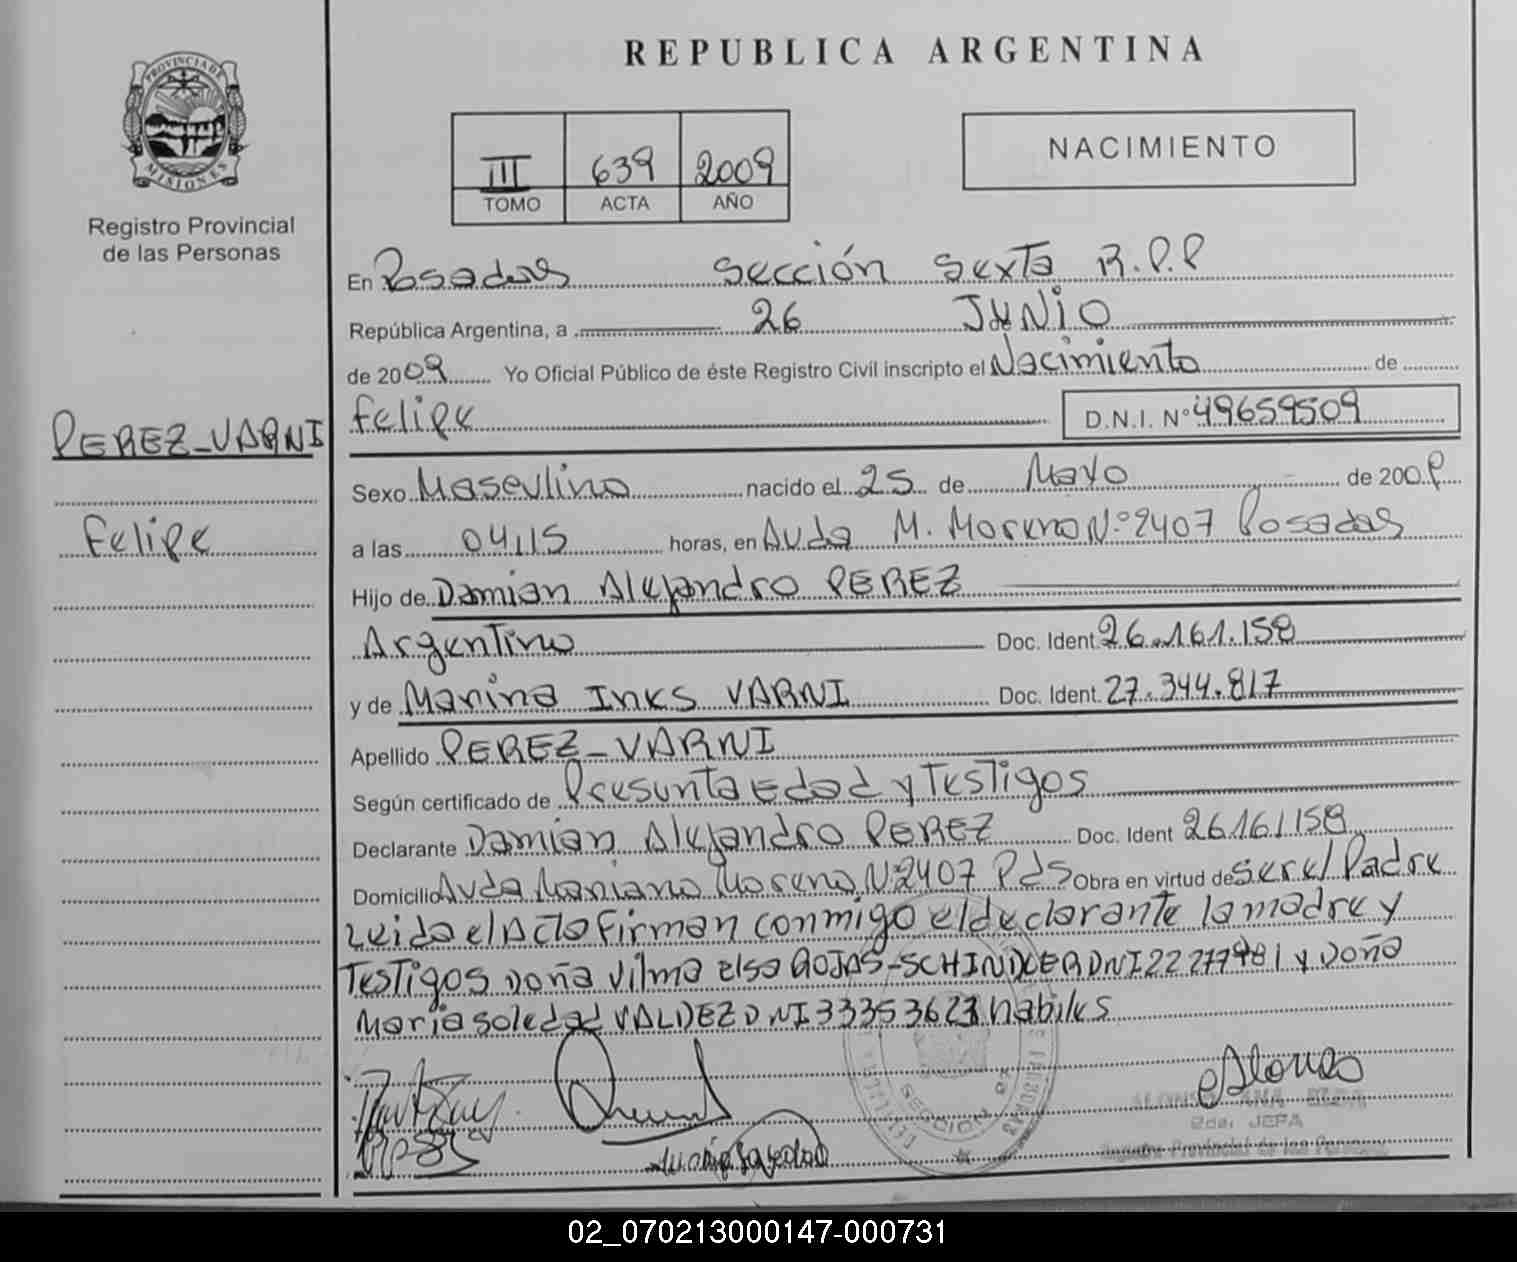 PROVINCIA DE
MISIONES
Registro Provincial
de las Personas
PEREZ-VARNI
Felipe
REPUBLICA ARGENTINA
III 639 2009
TOMO ACTA AÑO
NACIMIENTO
En Posadas Sección Sexta R.P.P
República Argentina, a 26 JUNIO
de 2009 Yo Oficial Público de éste Registro Civil inscripto el Nacimiento de
Felipe D.N.I. Nº 49659509
Sexo Masculino nacido el 25 de Mayo de 2009
a las 04,15 horas, en Avda M. Moreno Nº 2407 Posadas
Hijo de Damian Alejandro PEREZ
Argentino Doc. Ident. 26.161.158
y de Marina Ines VARNI Doc. Ident. 27.344.817
Apellido PEREZ-VARNI
Según certificado de Presunta Edad y Testigos
Declarante Damian Alejandro PEREZ Doc. Ident 26161158
Domicilio Avda Mariano Moreno Nº 2407 Pds Obra en virtud de ser el Padre
Leida el Acta Firman conmigo el declarante la madre y
Testigos Doña Vilma Elsa ROJAS-SCHINDLER DNI 22277981 y Doña
Maria Soledad VALDEZ DNI 33353623 habiles
SECCION 6ª
Alonso
ALONSO ANA
2da. JEFA
Registro Provincial de las Personas
02_070213000147-000731